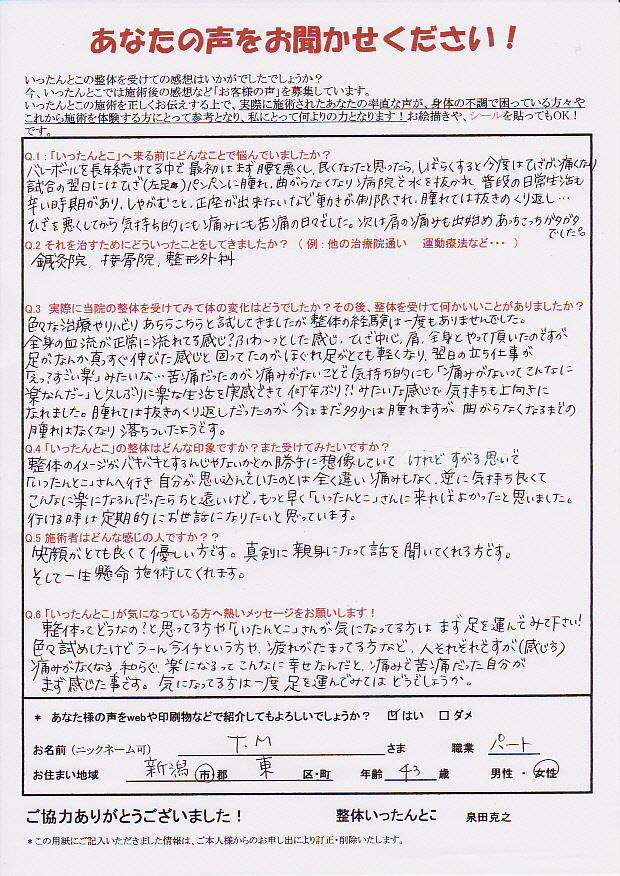 あなたの声をお聞かせください！
いったんとこの整体を受けての感想はいかがでしたでしょうか？
今、いったんとこでは施術後の感想など「お客様の声」を募集しています。
いったんとこの施術を正しくお伝えする上で、実際に施術されたあなたの率直な声が、身体の不調で困っている方々や
これから施術を体験する方にとって参考となり、私にとって何よりの力となります！お絵描きや、シールを貼ってもOK！
です。
Q.1：「いったんとこ」へ来る前にどんなことで悩んでいましたか？
バレーボールを長年続けてる中で最初はまず腰を悪くし、良くなったと思ったら、しばらくすると今度はひざが痛くなり
試合の翌日にはひざ(左足)パンパンに腫れ、曲がらなくなり病院で水を抜かれ、普段の日常生活も
辛い時期があり、しゃがむこと、正座が出来ないなど動きが制限され、腫れては抜きのくり返し…
ひざを悪くしてから気持ち的にも痛みにも苦痛の日々でした。次は肩の痛みも出始めあっちこっちがガタガタ
でした。
Q.2 それを治すためにどういったことをしてきましたか？（例：他の治療院通い 運動療法など・・・）
鍼灸院、接骨院、整形外科
Q.3 実際に当院の整体を受けてみて体の変化はどうでしたか？その後、整体を受けて何かいいことがありましたか？
色々な治療やリハビリあちらこちらと試してきましたが整体の経験は一度もありませんでした。
全身の血流が正常に流れてる感じ？ふわ〜っとした感じ、ひざ中心、肩、全身とやって頂いたのですが
足がなんか真っすぐ伸びた感じと固ってたのがほぐれ足がとても軽くなり、翌日の立ち仕事が
「えっ？すごい楽」みたいな…苦痛だったのが痛みがないことで気持ち的にも「痛みがないってこんなに
楽なんだー」と久しぶりに楽な生活を実感できて何年ぶり？！みたいな感じで気持ちも上向きに
なれました。腫れては抜きのくり返しだったのが、今はまだ多少は腫れますが曲がらなくなるまでの
腫れはなくなり落ちついたようです。
Q.4「いったんとこ」の整体はどんな印象ですか？また受けてみたいですか？
整体のイメージがバキバキとするんじゃないかとか勝手に想像していて けれど すがる思いで
「いったんとこ」さんへ行き自分が思い込んでいたのとは全く違い痛みもなく、逆に気持ち良くて
こんなに楽になるんだったらちと遠いけど、もっと早く「いったんとこ」さんに来ればよかったと思いました。
行ける時は定期的にお世話になりたいと思っています。
Q.5 施術者はどんな感じの人ですか？？
笑顔がとても良くて優しい方です。真剣に親身になって話を聞いてくれる方です。
そして一生懸命施術してくれます。
Q.6「いったんとこ」が気になっている方へ熱いメッセージをお願いします！
整体ってどうなの？と思ってる方や「いったんとこ」さんが気になってる方はまず足を運んでみて下さい！
色々試めしたけどうーん…イチという方や、疲れがたまってる方など、人それぞれですが(感じ方)
痛みがなくなる、和らぐ、楽になるってこんなに幸せなんだと、痛みで苦痛だった自分が
まず感じた事です。気になってる方は一度足を運んでみては どうでしょうか。
* あなた様の声をwebや印刷物などで紹介してもよろしいでしょうか？ ☑はい □ダメ
お名前（ニックネーム可） T.M さま 職業 パート
お住まい地域 新潟 市郡 東 区・町 年齢 43 歳 男性 ・ 女性
ご協力ありがとうございました！ 整体いったんとこ 泉田克之
*この用紙にご記入いただきました情報は、ご本人様からのお申し出により訂正・削除いたします。